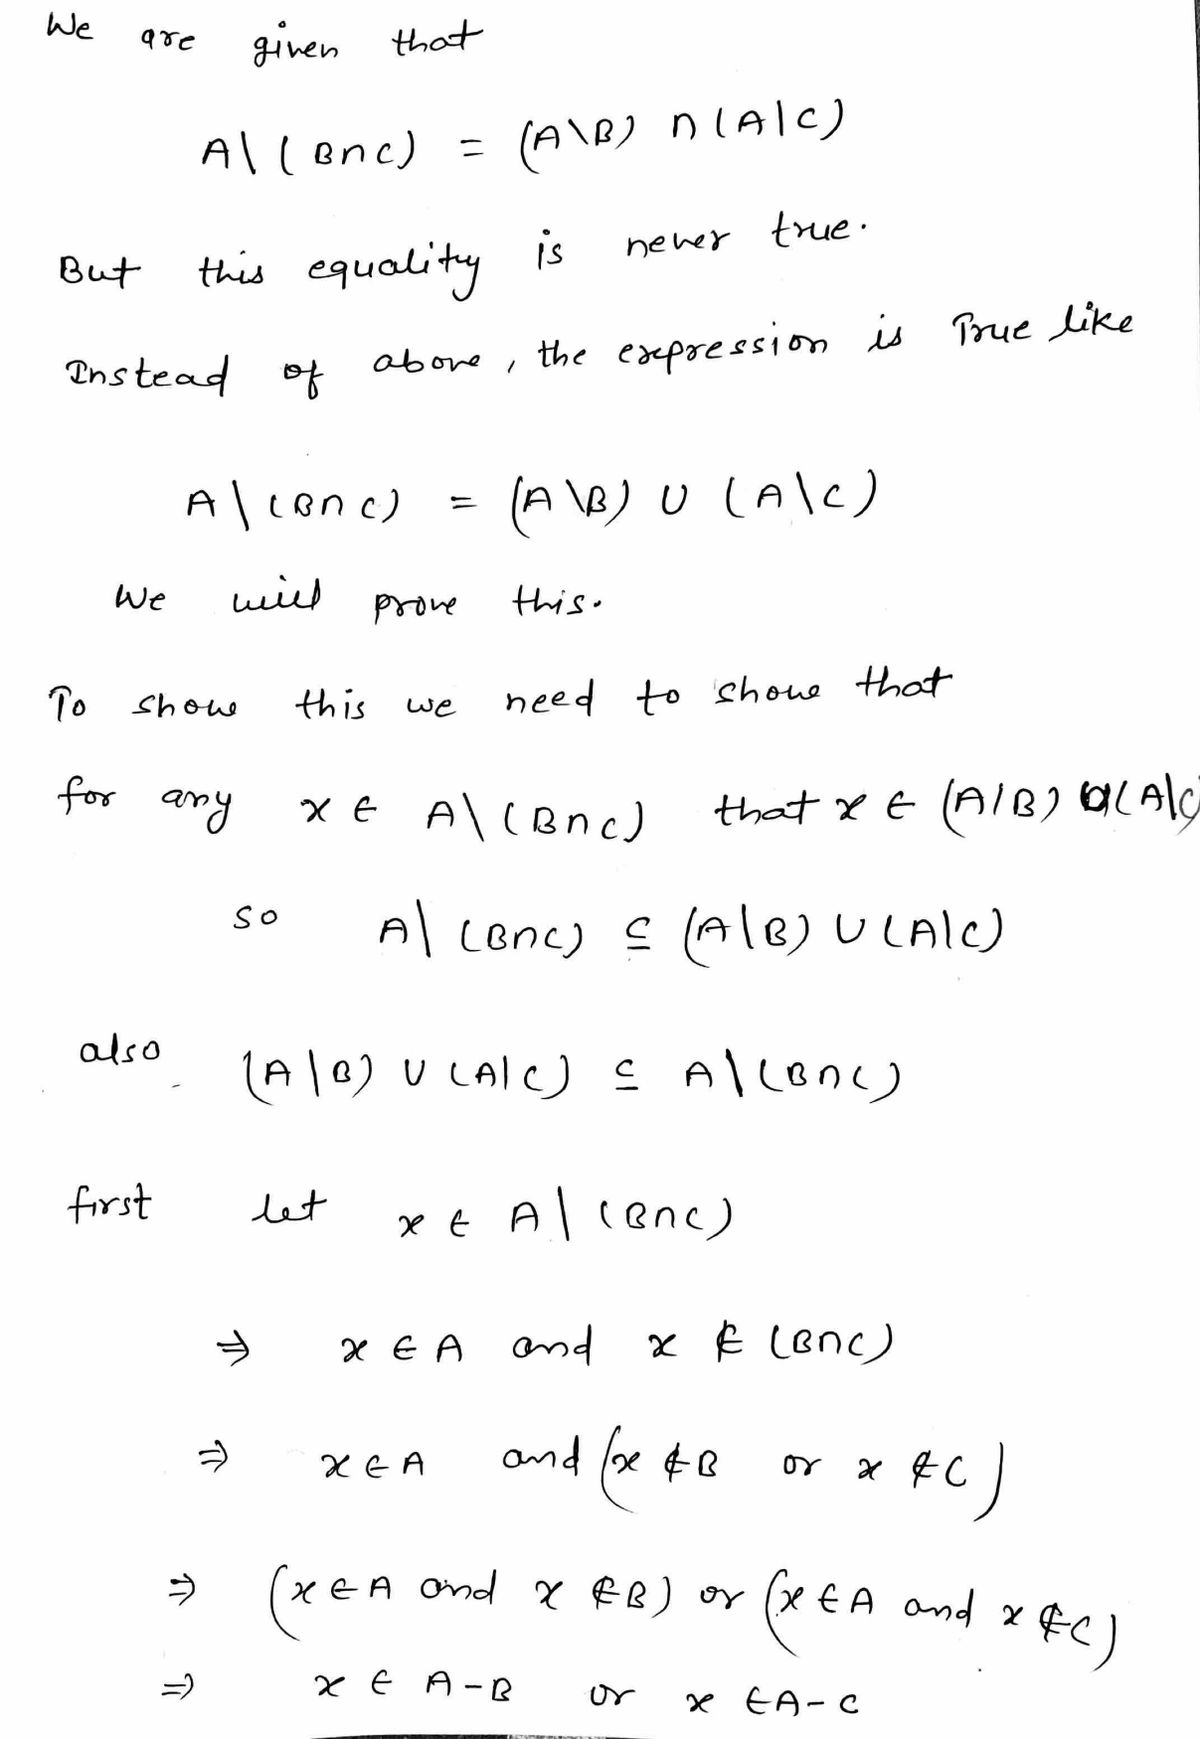 We are given that
A\(B∩C) = (A\B) ∩ (A|C)
But this equality is never true.
Instead of above, the expression is True like
A\(B∩C) = (A\B) ∪ (A\C)
We will prove this.
To show this we need to show that
for any x ∈ A\(B∩C) that x ∈ (A/B) ∪ (A\C)
so A\(B∩C) ⊆ (A\B) ∪ (A|C)
also (A|B) ∪ (A|C) ⊆ A\(B∩C)
first let x ∈ A\(B∩C)
⇒ x ∈ A and x ∉ (B∩C)
⇒ x ∈ A and (x ∉ B or x ∉ C)
⇒ (x ∈ A and x ∉ B) or (x ∈ A and x ∉ C)
⇒ x ∈ A-B or x ∈ A-C